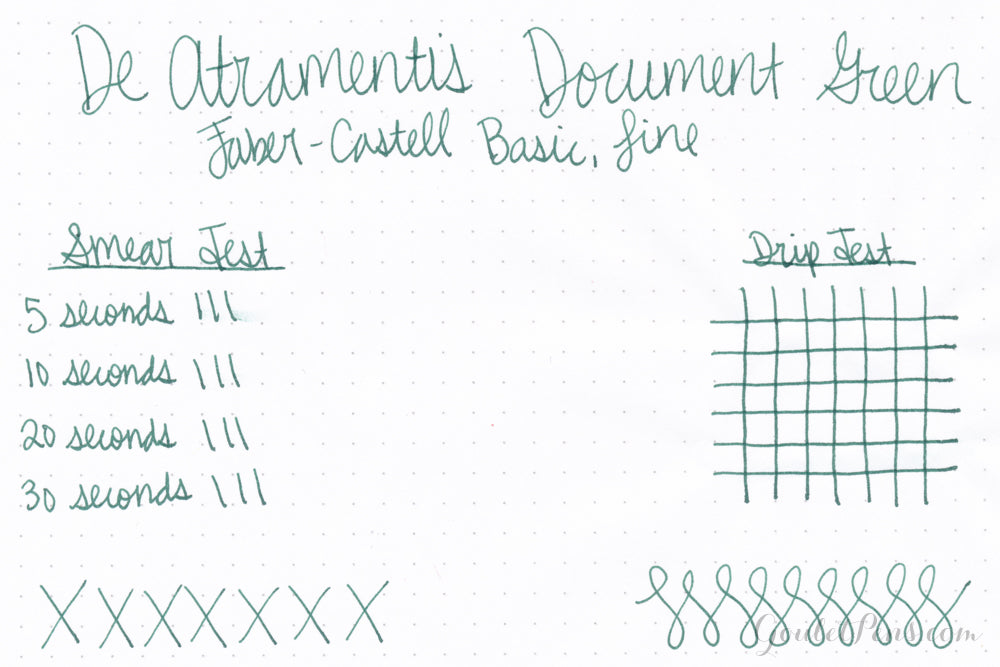 De Atramentis Document Green
Faber-Castell Basic, fine
Smear Test
5 seconds
10 seconds
20 seconds
30 seconds
Drip Test
GouletPens.com